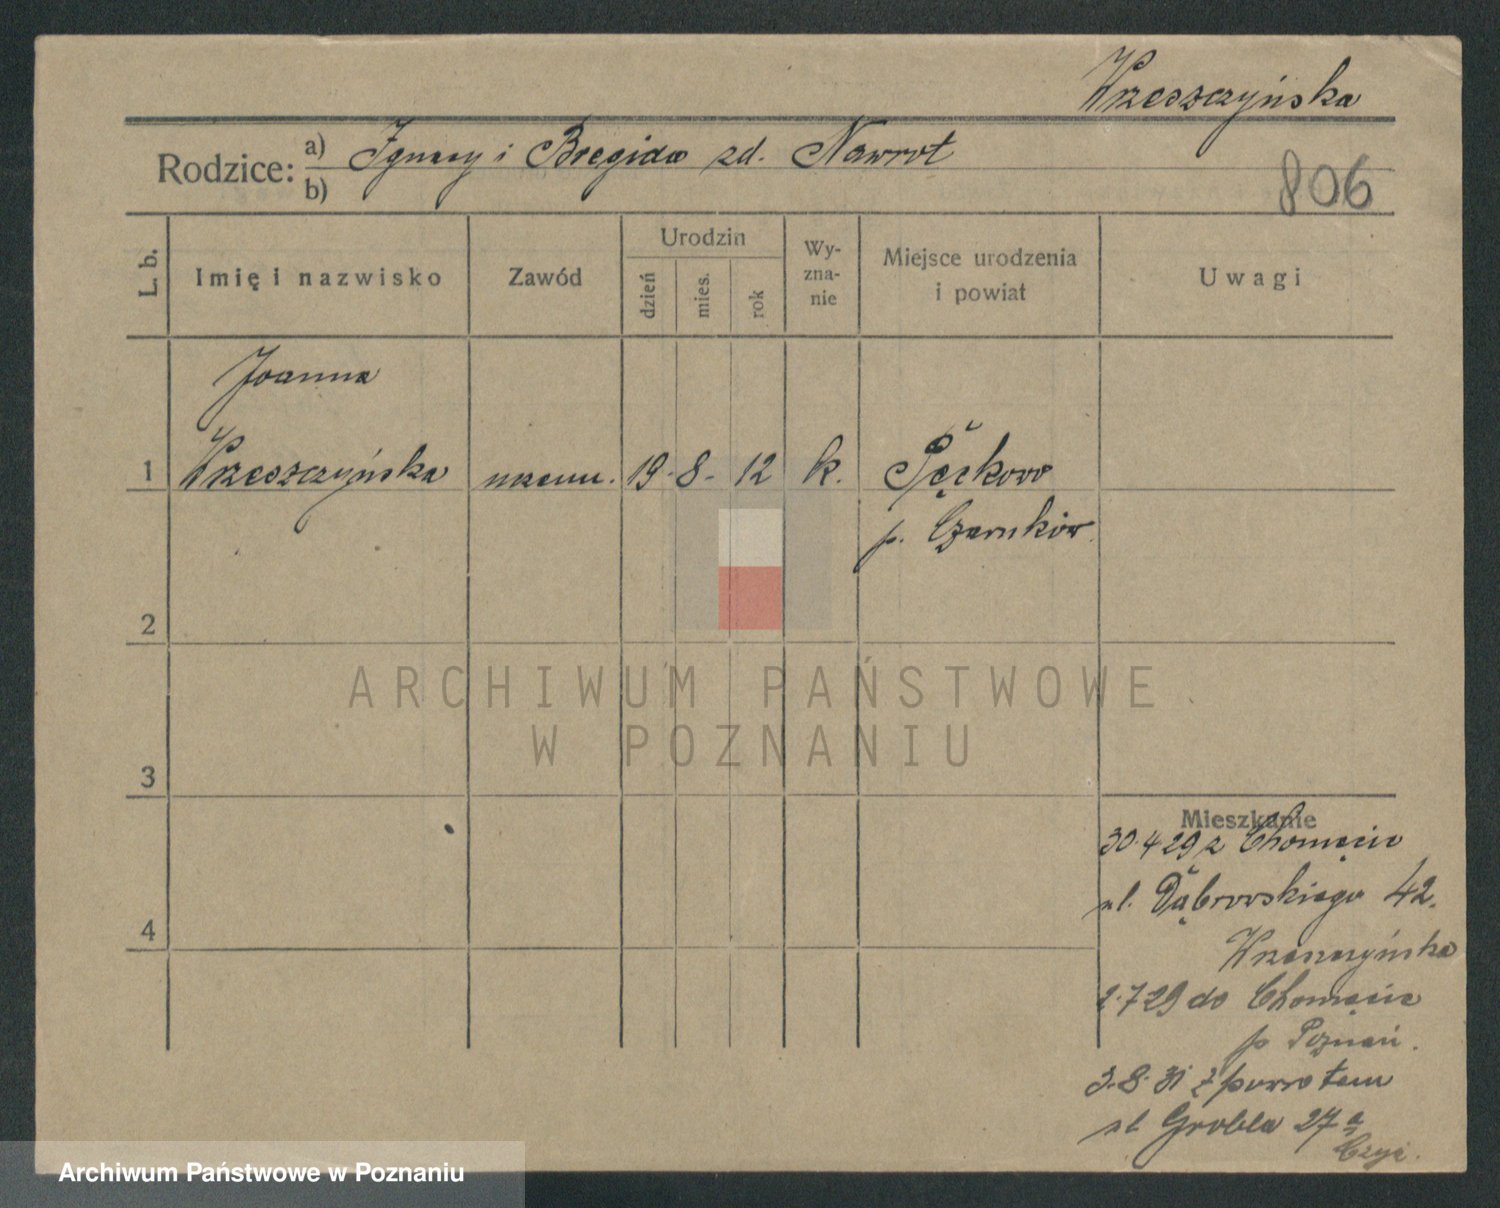 Wrzeszczyńska
Rodzice: a) Ignacy i Bregida zd. Nawrot
b)
806
L. b.
Imię i nazwisko
Zawód
Urodzin
dzień
mies.
rok
Wy-
zna-
nie
Miejsce urodzenia
i powiat
Uwagi
Joanna
1 Wrzeszczyńska uczenn. 19. 8. 12 k. Pęckowo
p. Czarnków
2
3
4
Mieszkanie
30.4 29 z Chomęcic
ul. Dąbrowskiego 42.
Wrzeszczyńska
2.7 29 do Chomęcic
p Poznań.
3.8.31 z powrotem
ul Grobla 27a
ARCHIWUM PAŃSTWOWE
W POZNANIU
Archiwum Państwowe w Poznaniu